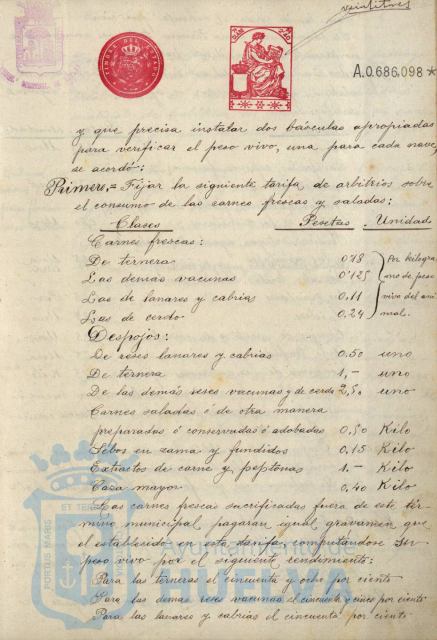 veintitres
TIMBRE DEL ESTADO
A.0.686,098 *
y que precisa instalar dos básculas apropiadas
para verificar el peso vivo, una para cada nave,
se acordó:
Primero.= Fijar la siguiente tarifa, de arbitrios sobre
el consumo de las carnes frescas y saladas:
Clases Pesetas Unidad
Carnes frescas:
De ternera 0'18 Por kilogra-
Las demás vacunas 0'125 mo de peso
Las de lanares y cabrias 0,11 vivo del ani-
Las de cerdo 0,24 mal.
Despojos:
De reses lanares y cabrias 0,50 uno
De ternera 1,- uno
De las demás reses vacunas y de cerdo 2,50 uno
Carnes saladas ó de otra manera
preparadas ó conservadas ó adobadas 0,50 Kilo
Sebos en rama y fundidos 0,15 Kilo
Extractos de carne y peptonas 1.- Kilo
Caza mayor 0,40 Kilo
Las carnes frescas sacrificadas fuera de este tér-
mino municipal, pagarán igual gravamen que
el establecido en esta tarifa, computándose su
peso vivo por el siguiente rendimiento:
Para las terneras el cincuenta y ocho por ciento
Para las demás reses vacunas el cincuenta y cinco por ciento
Para las lanares y cabrias el cincuenta por ciento
Ayuntamiento de
ET TERRIS
PORTUS MARIS